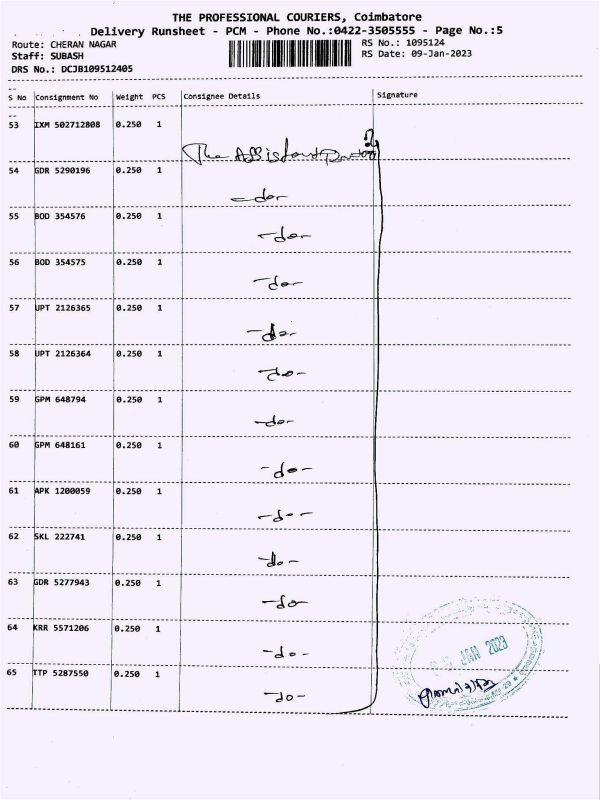 THE PROFESSIONAL COURIERS, Coimbatore
Delivery Runsheet - PCM - Phone No.:0422-3505555 - Page No.:5
Route: CHERAN NAGAR
RS No.: 1095124
Staff: SUBASH
RS Date: 09-Jan-2023
DRS No.: DCJB109512405
S No Consignment No Weight PCS Consignee Details Signature
53 IXM 502712808 0.250 1
The Assistant
54 GDR 5290196 0.250 1
-do-
55 BOD 354576 0.250 1
-do-
56 BOD 354575 0.250 1
-do-
57 UPT 2126365 0.250 1
-do-
58 UPT 2126364 0.250 1
-do-
59 GPM 648794 0.250 1
-do-
60 GPM 648161 0.250 1
-do-
61 APK 1200059 0.250 1
-do-
62 SKL 222741 0.250 1
-do-
63 GDR 5277943 0.250 1
-do-
64 KRR 5571206 0.250 1
-do-
JAN 2023
65 TTP 5287550 0.250 1
-do-